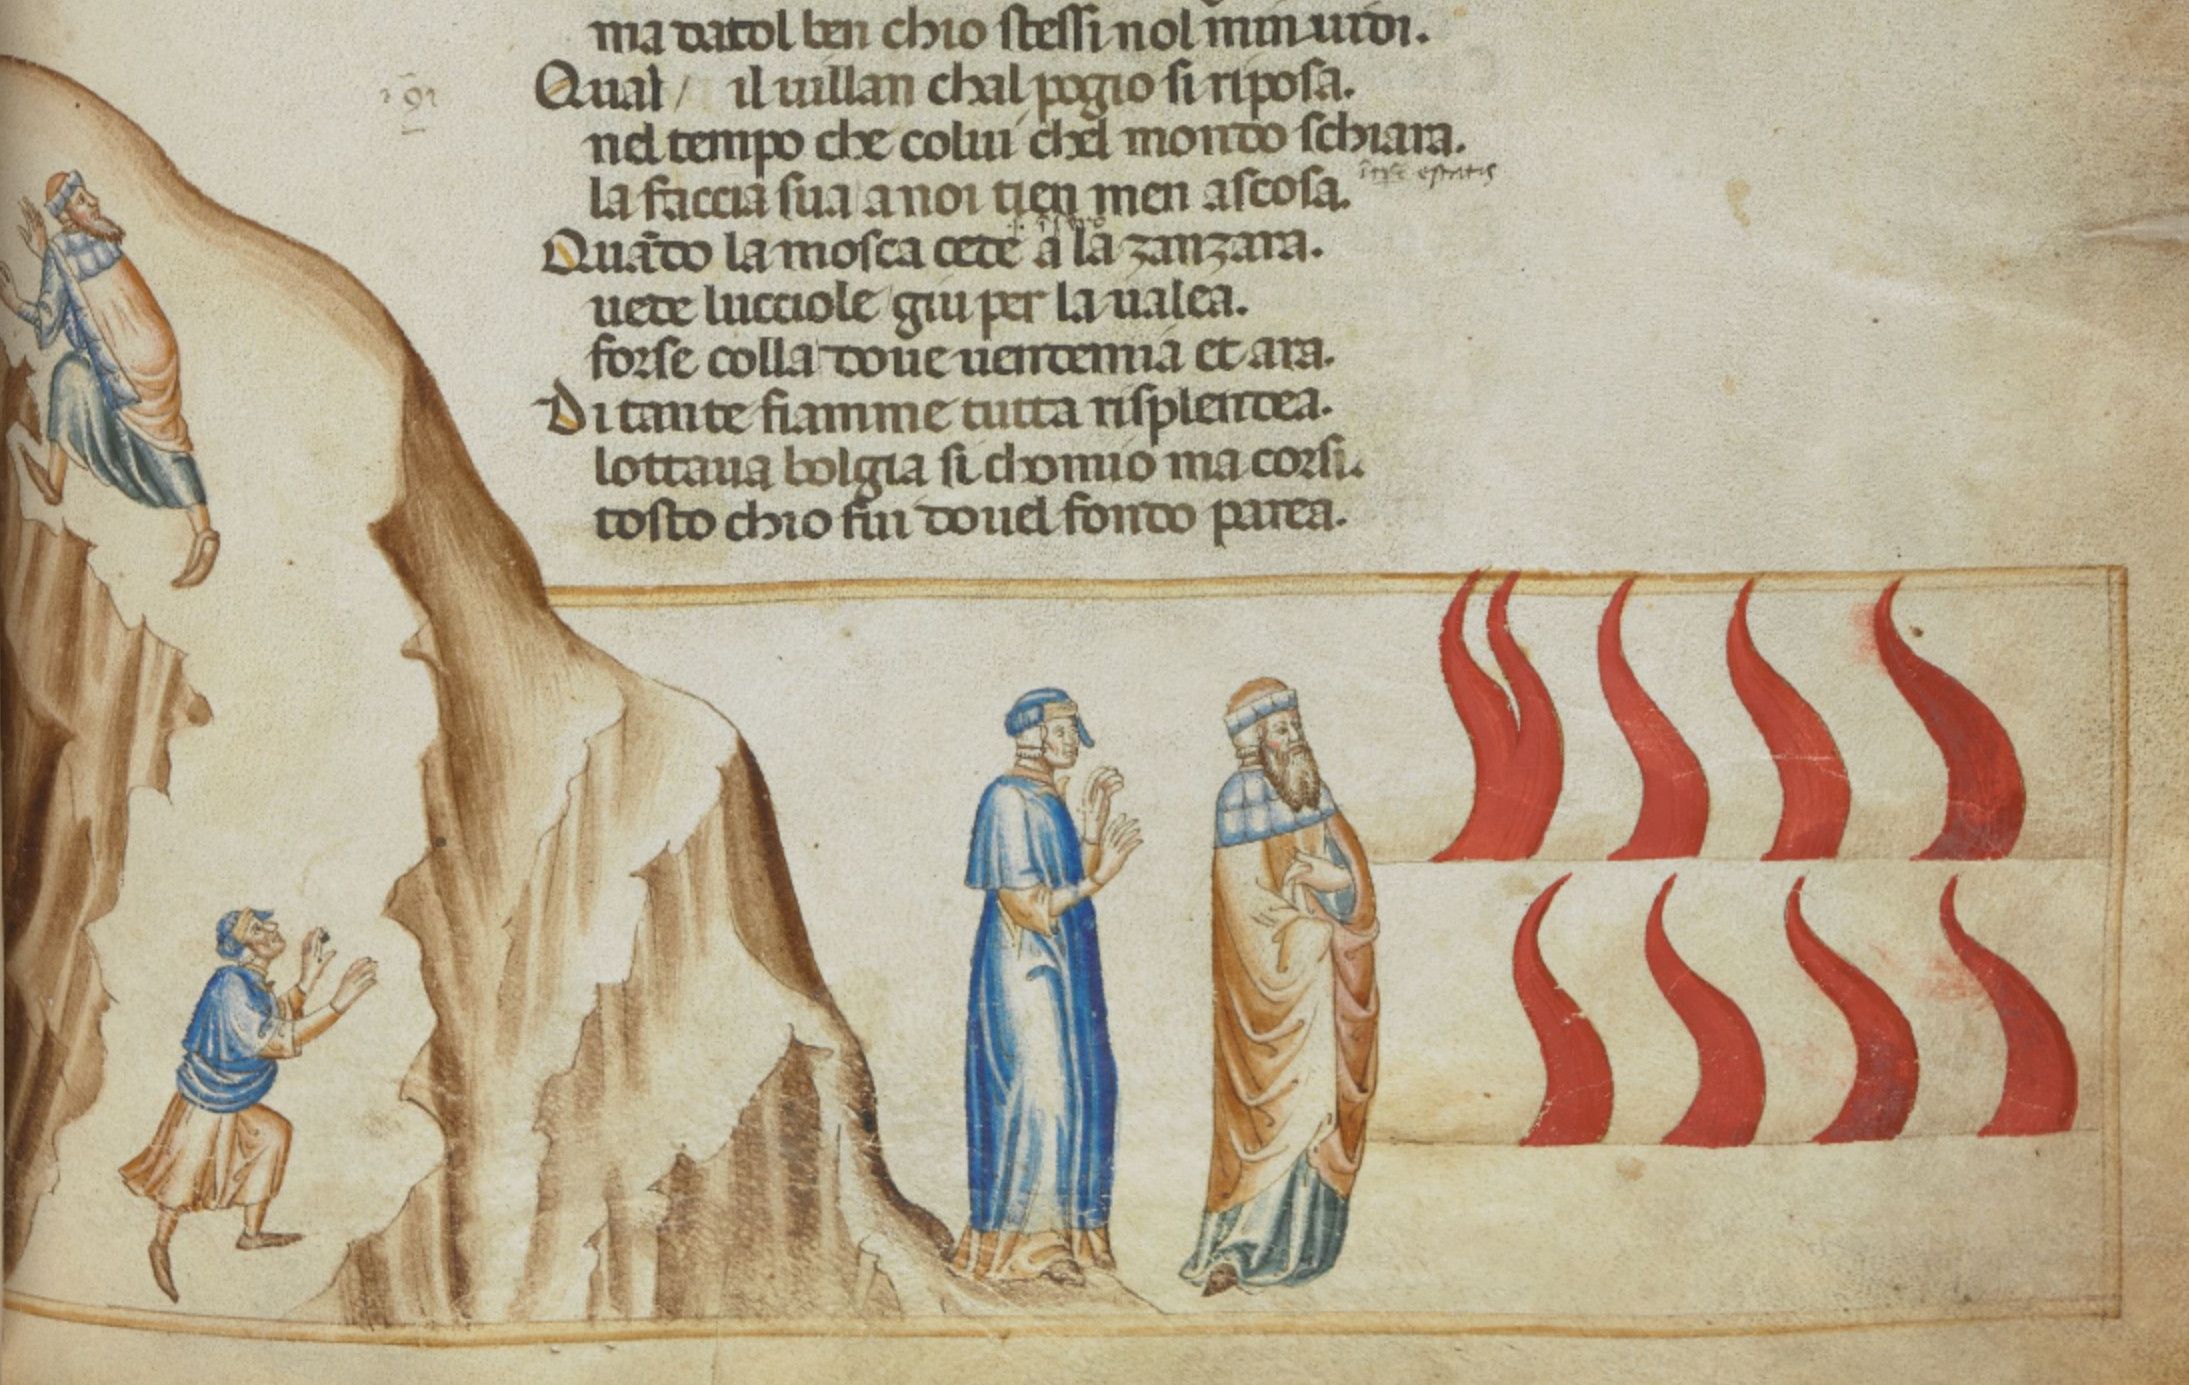 ma datol ben chio stessi nol minuidi.
Qual / il uillan chal pogio si riposa.
nel tempo che colui chel mondo schiara.
la faccia sua a noi tien men ascosa.
Quādo la mosca cede a la zanzara.
uede lucciole giu per la ualea.
forse colla doue uendemia et ara.
Di tante fiamme tutta risplendea.
lottaua bolgia si chomio ma corsi.
tosto chio fui douel fondo parea.